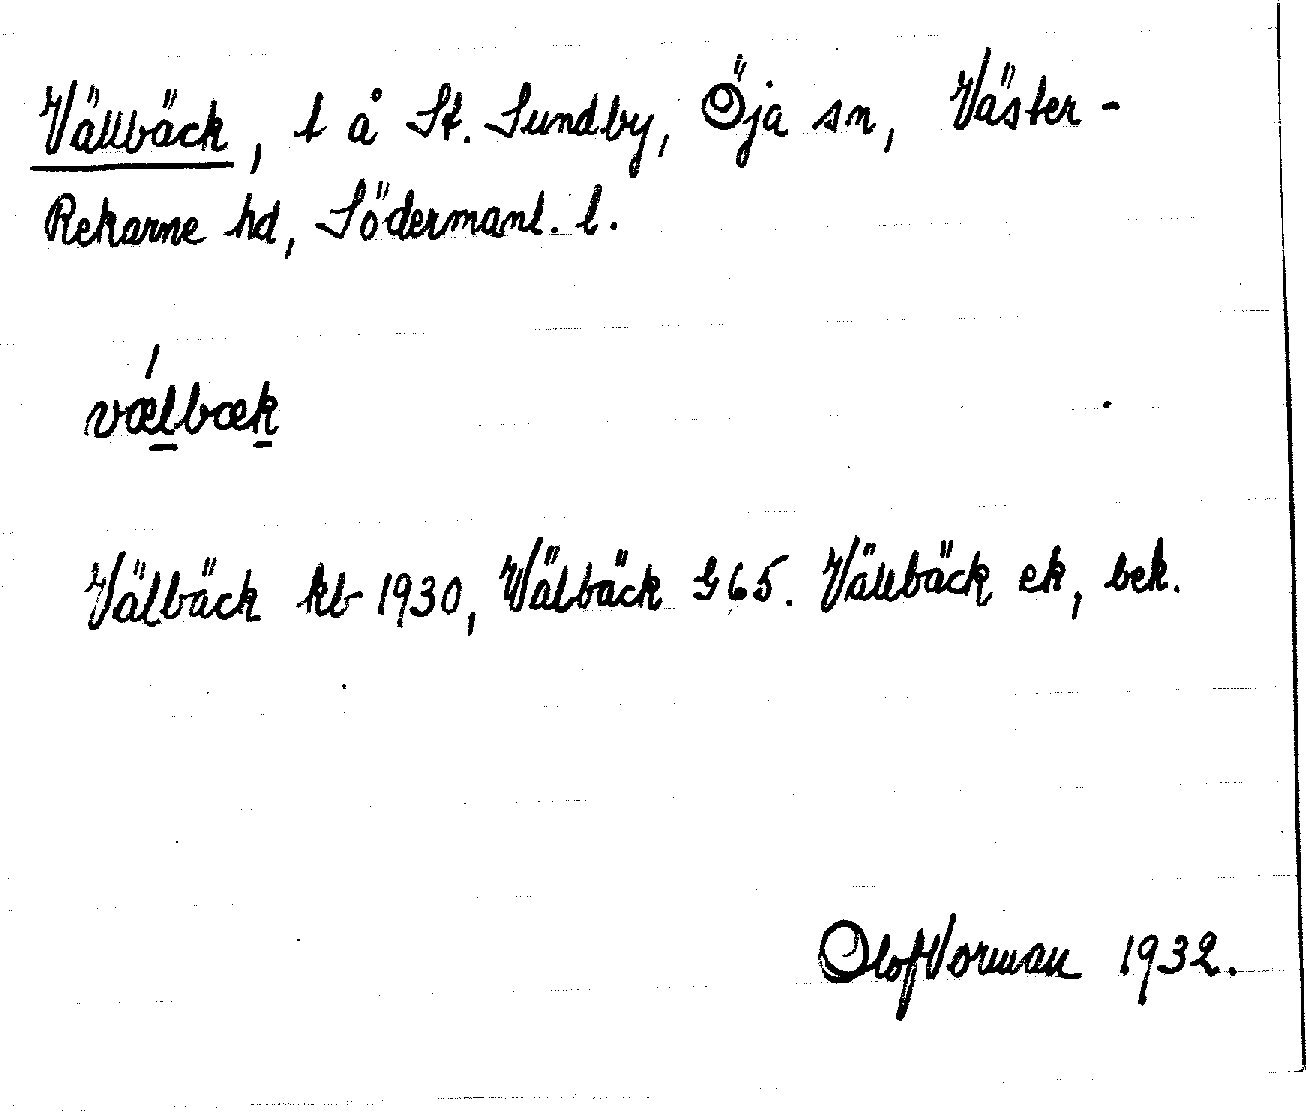 Vällbäck, t å St. Sundby, Öja sn, Väster-
Rekarne hd, Södermanl. l.
vǽl̲bæk̲
Välbäck kb 1930, Wälbäck G65. Vällbäck ek, bek.
Olof Vorman 1932.